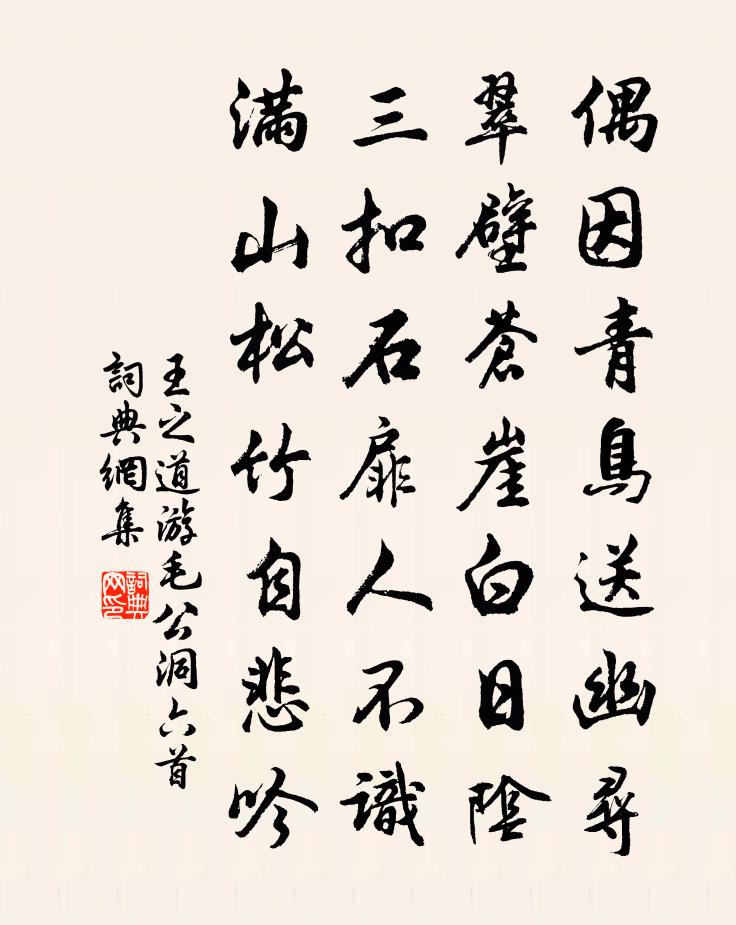 偶因青鳥送幽尋
翠壁蒼崖白日陰
三扣石扉人不識
滿山松竹自悲吟
王之道游毛公洞六首
詞典網集
詞典网印